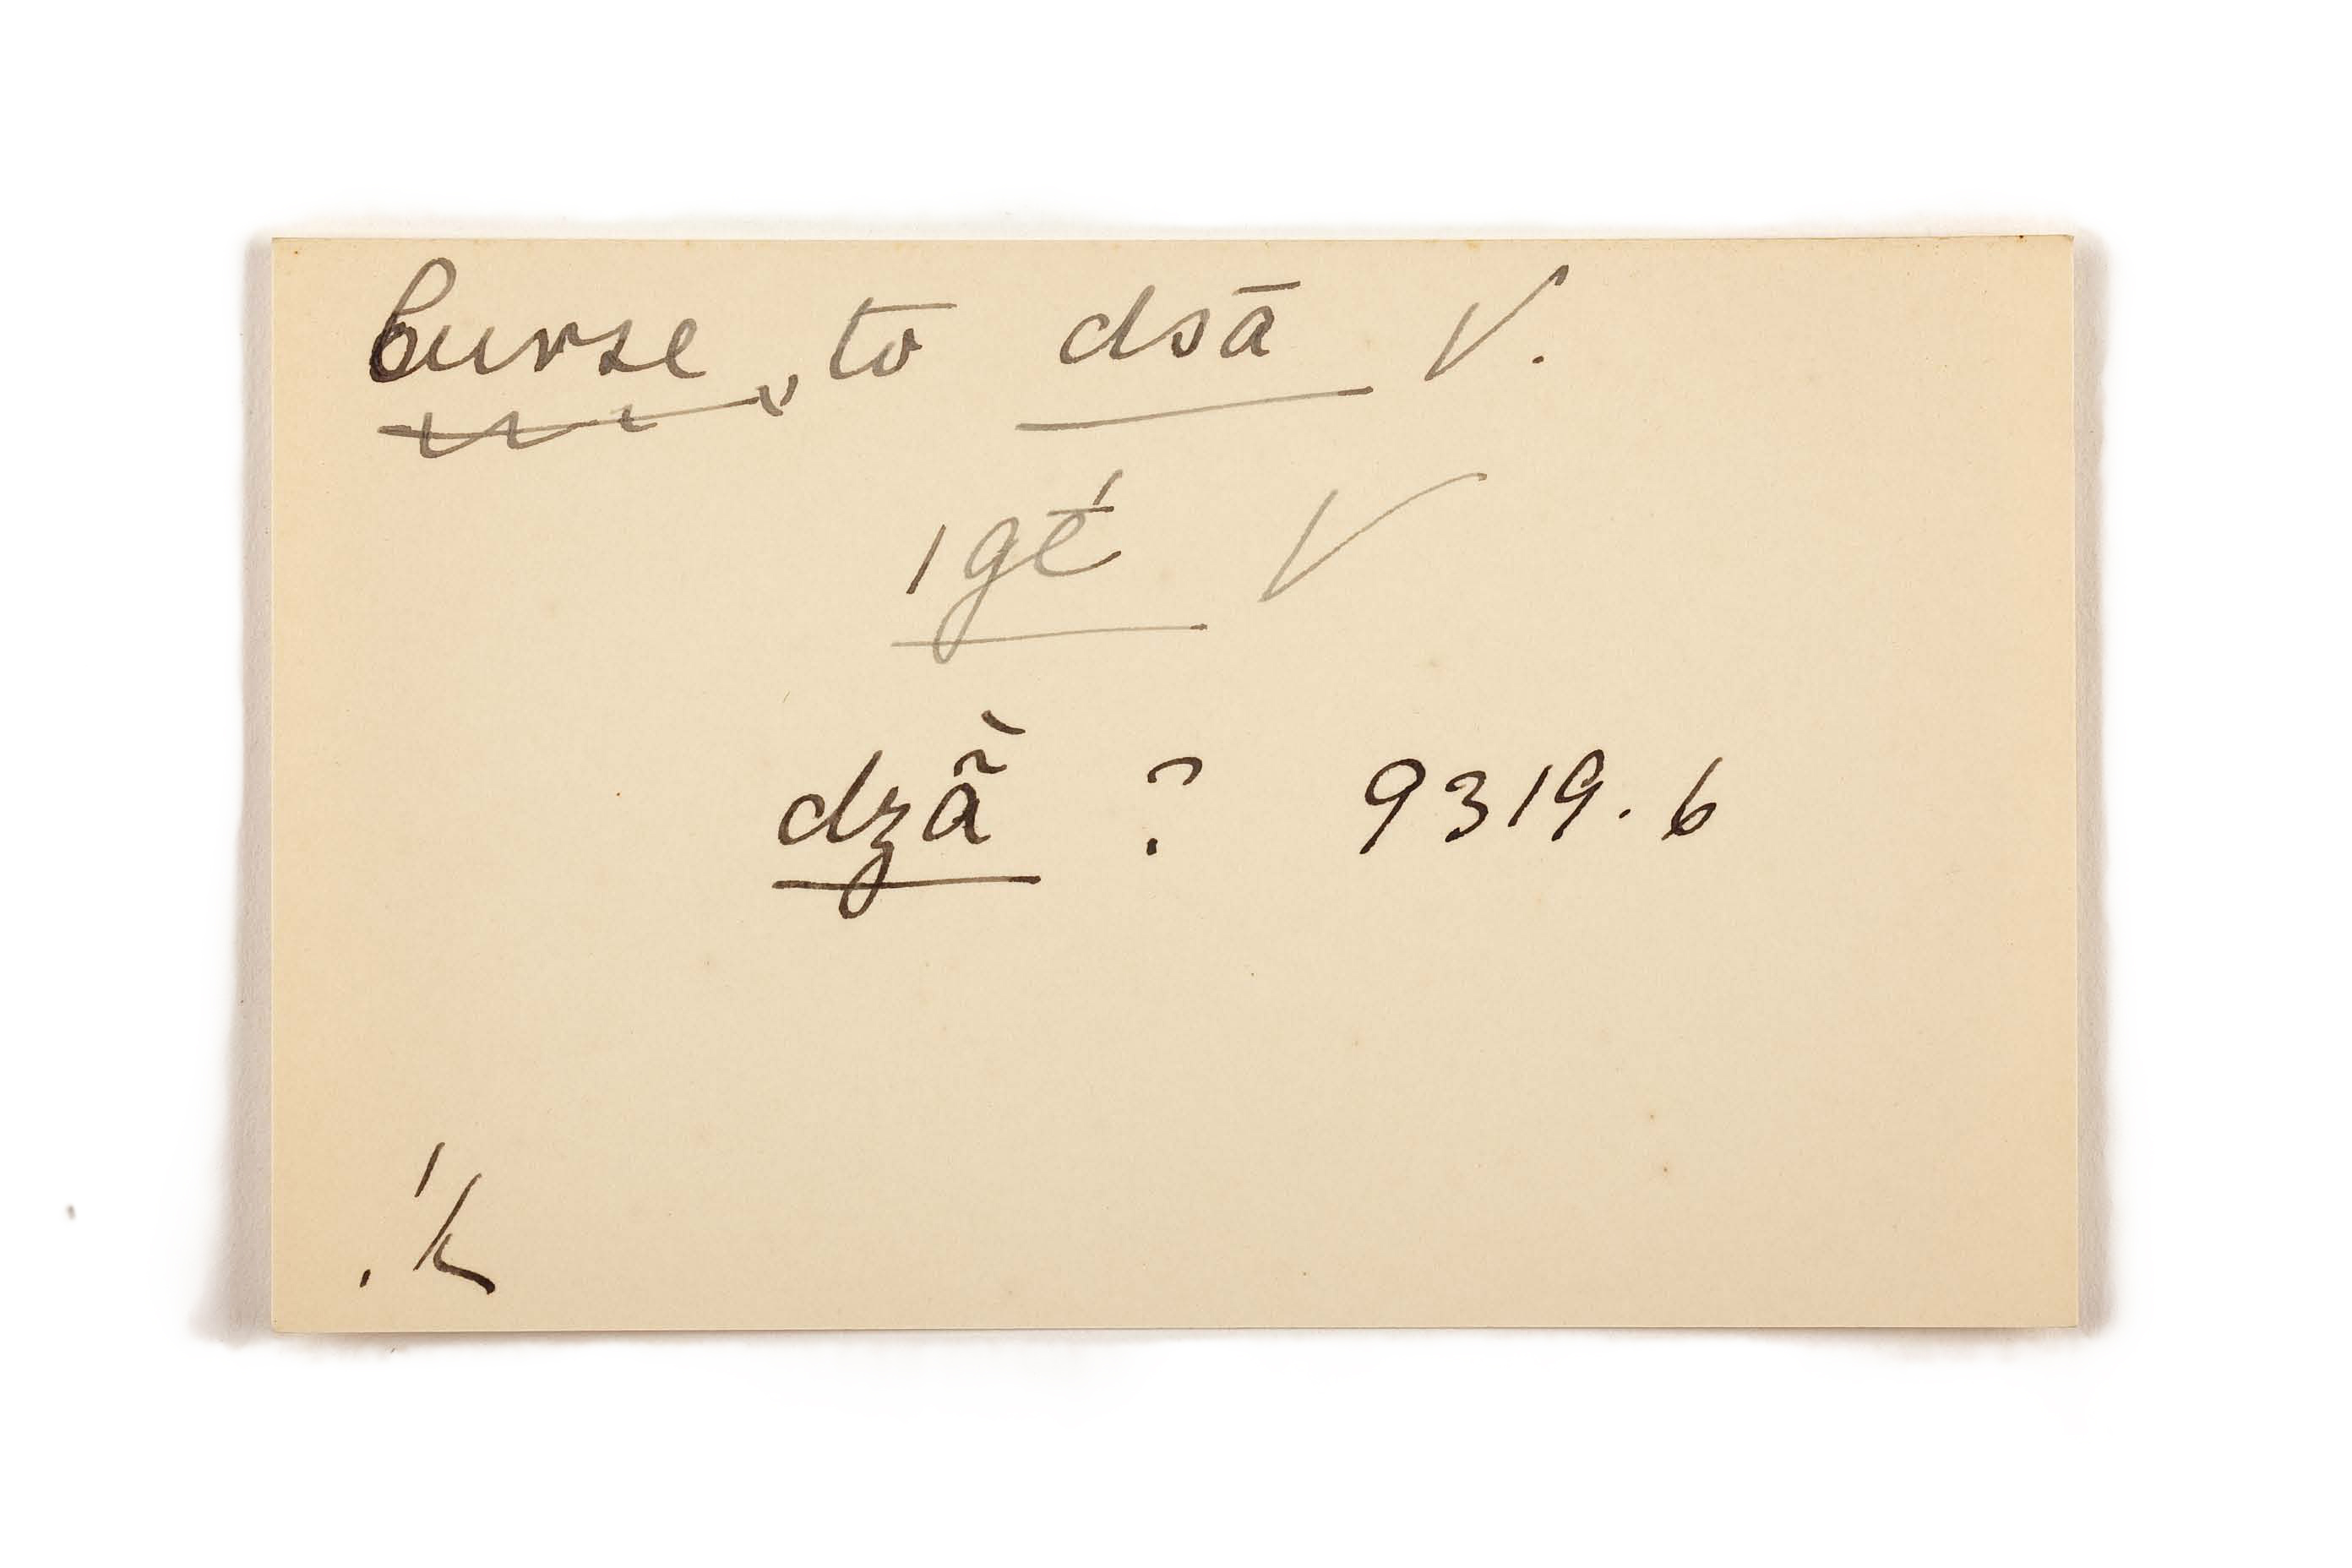 Curse, to dsā V.
ıgḗ V
dzã̀ ? 9319.6